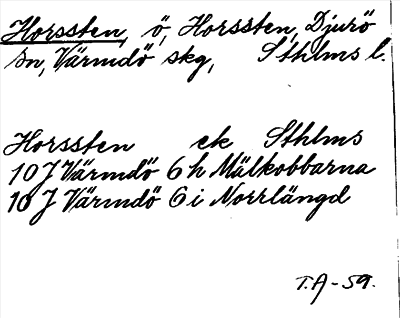 Horssten, ö, Horssten, Djurö
sn, Värmdö skg, Sthlms l.
Horssten ek Sthlms
10 J Värmdö 6 h Mälkobbarna
10 J Värmdö 6 i Norrlängd
T.A-59.